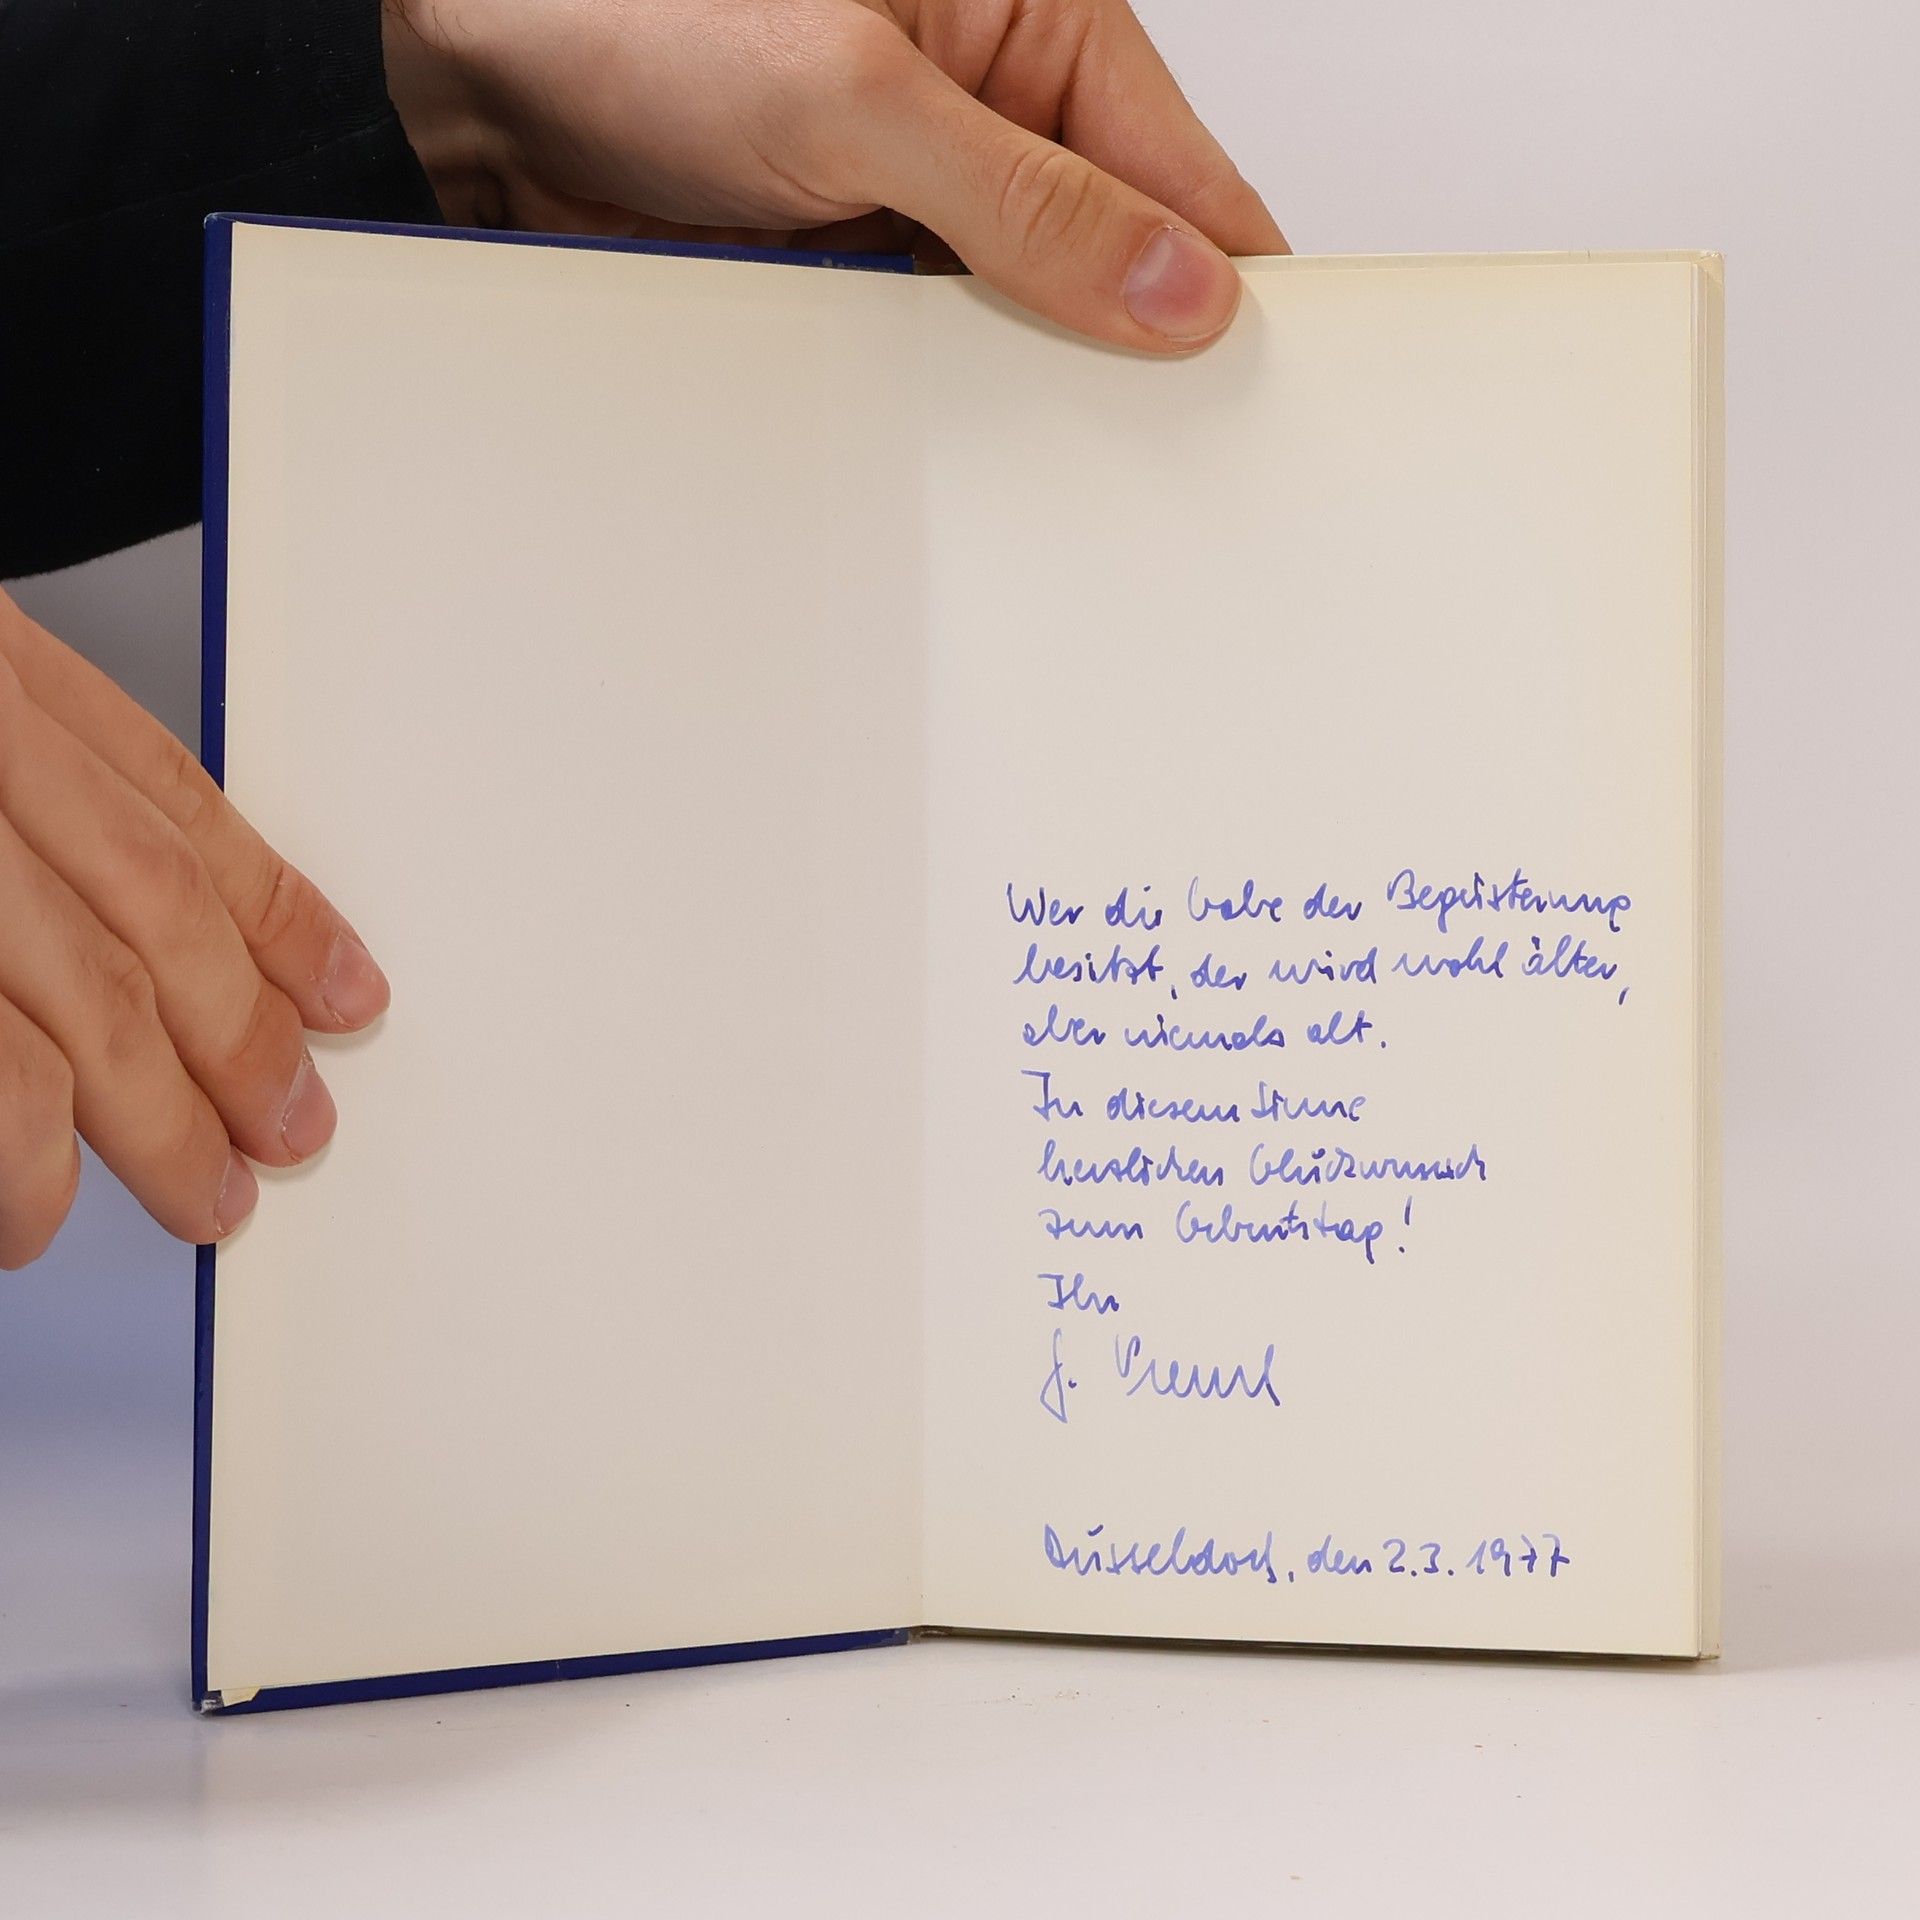 Wer die Gabe der Begeisterung
besitzt, der wird wohl älter,
aber niemals alt.
In diesem Sinne
herzlichen Glückwunsch
zum Geburtstag!
Ihr
J.
Düsseldorf, den 2.3.1977